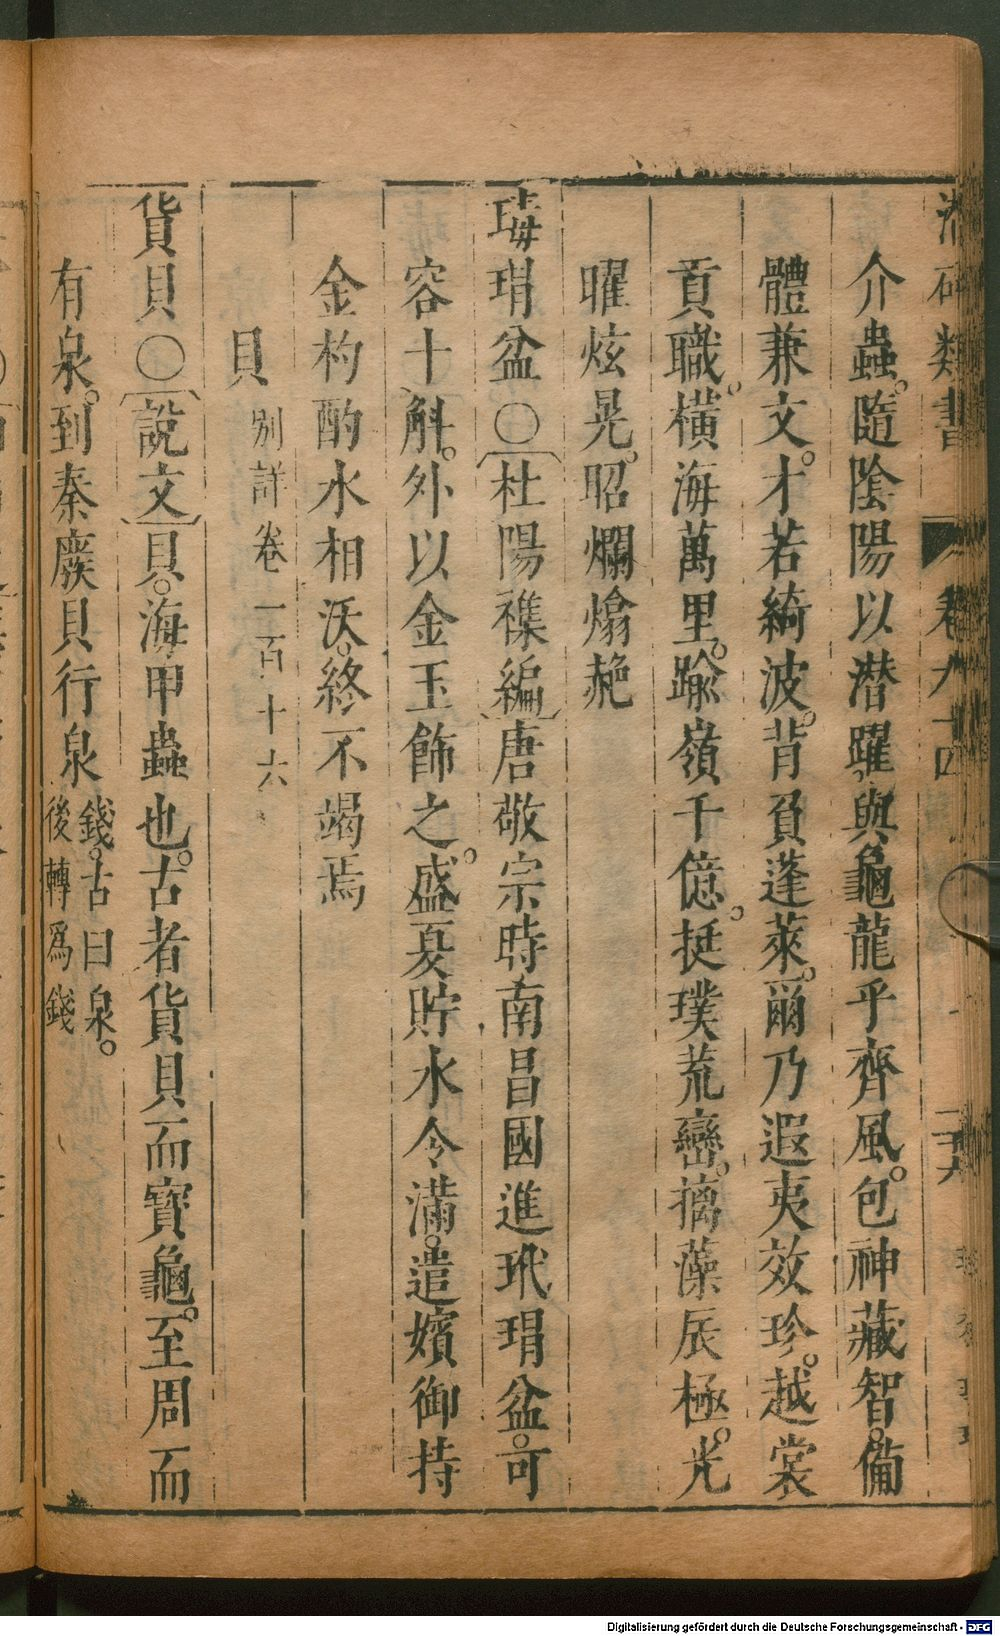 類書 卷九十四
介蟲。隨陰陽以潜躍。與龜龍乎齊風。包神藏智。備
體兼文。才若綺波。背負蓬萊。爾乃遐夷效珍。越裳
貢職。橫海萬里。踰嶺千億。挺璞荒巒。摛藻辰極。光
曜炫晃。昭爛煽赩
瑇瑁盆〇杜陽襍編唐敬宗時南昌國進玳瑁盆。可
容十斛。外以金玉飾之。盛夏貯水令滿。遣嬪御持
金杓酌水相沃。終不竭焉
貝 別詳卷一百十六
貨貝〇說文貝。海甲蟲也。古者貨貝而寶龜。至周而
有泉。到秦廢貝行泉 錢。古曰泉。
後轉爲錢
Digitalisierung gefördert durch die Deutsche Forschungsgemeinschaft - DFG